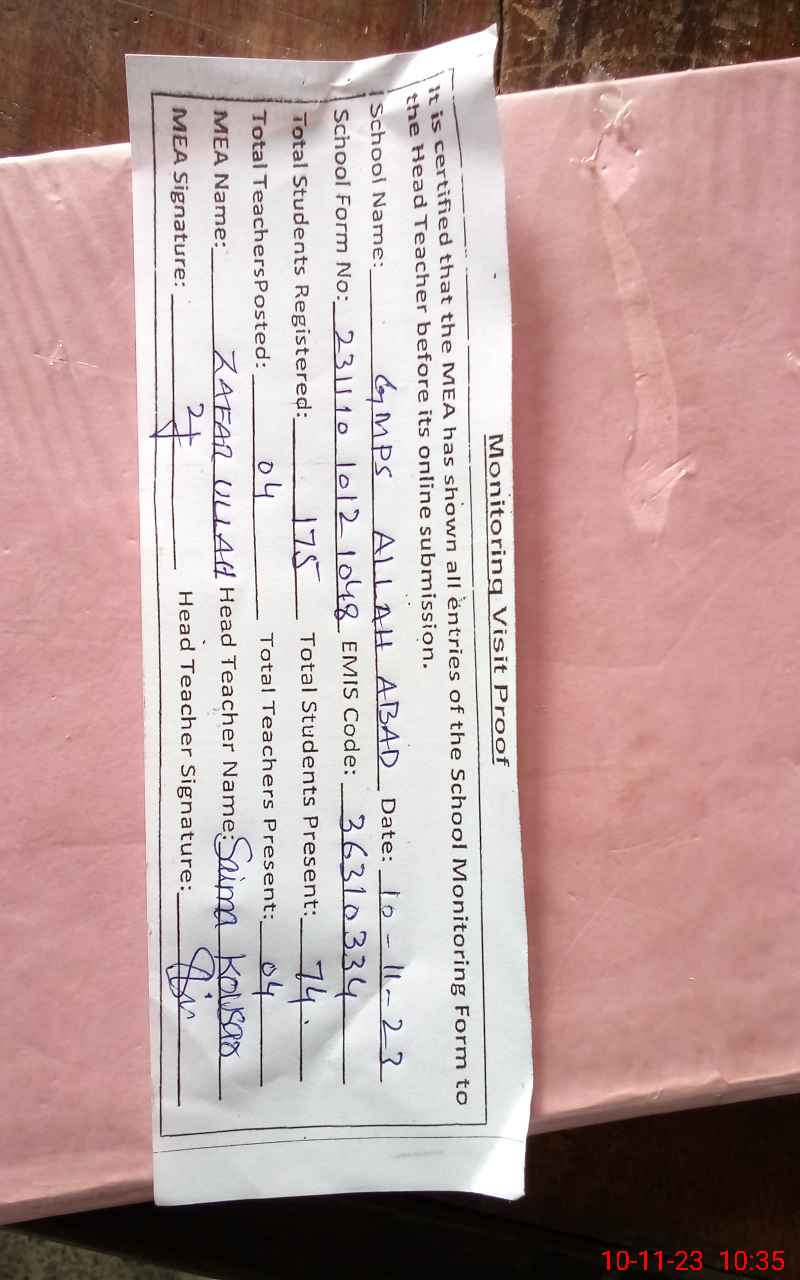 Monitoring Visit Proof
It is certified that the MEA has shown all entries of the School Monitoring Form to
the Head Teacher before its online submission.
School Name: GMPS ALLAH ABAD Date: 10-11-23
School Form No: 231110 1012 1048 EMIS Code: 36310334
Total Students Registered: 175 Total Students Present: 74.
Total TeachersPosted: 04 Total Teachers Present: 04
MEA Name: ZAFAR ULLAH Head Teacher Name: Saima Kousar
MEA Signature: Head Teacher Signature:
10-11-23 10:35